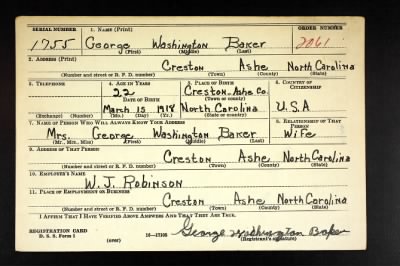 SERIAL NUMBER 1. NAME (Print) ORDER NUMBER
1755 George Washington Baker 2061
(First) (Middle) (Last)
2. ADDRESS (Print)
Creston Ashe North Carolina
(Number and street or R. F. D. number) (Town) (County) (State)
3. TELEPHONE 4. AGE IN YEARS 5. PLACE OF BIRTH 6. COUNTRY OF CITIZENSHIP
22 Creston, Ashe Co.
DATE OF BIRTH (Town or county)
March 15 1918 North Carolina U.S.A
(Exchange) (No.) (Mo.) (Day) (Yr.) (State or country)
7. NAME OF PERSON WHO WILL ALWAYS KNOW YOUR ADDRESS 8. RELATIONSHIP OF THAT PERSON
Mrs. George Washington Baker Wife
(Mr., Mrs., Miss) (First) (Middle) (Last)
9. ADDRESS OF THAT PERSON
Creston Ashe North Carolina
(Number and street or R. F. D. number) (Town) (County) (State)
10. EMPLOYER'S NAME
W. J. Robinson
11. PLACE OF EMPLOYMENT OR BUSINESS
Creston Ashe North Carolina
(Number and street or R. F. D. number) (Town) (County) (State)
I AFFIRM THAT I HAVE VERIFIED ABOVE ANSWERS AND THAT THEY ARE TRUE.
REGISTRATION CARD
D. S. S. Form 1 16—17105 George Washington Baker
(over) (Registrant's signature)